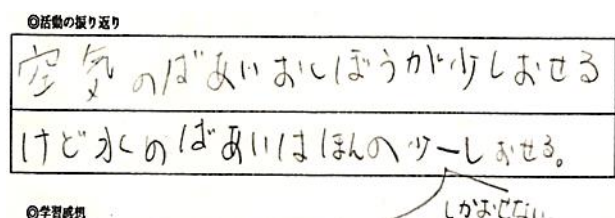 ◎活動の振り返り
空気のばあいおしぼうが少しおせる
けど水のばあいはほんの少ーしおせる。
しかおせない
◎学習感想